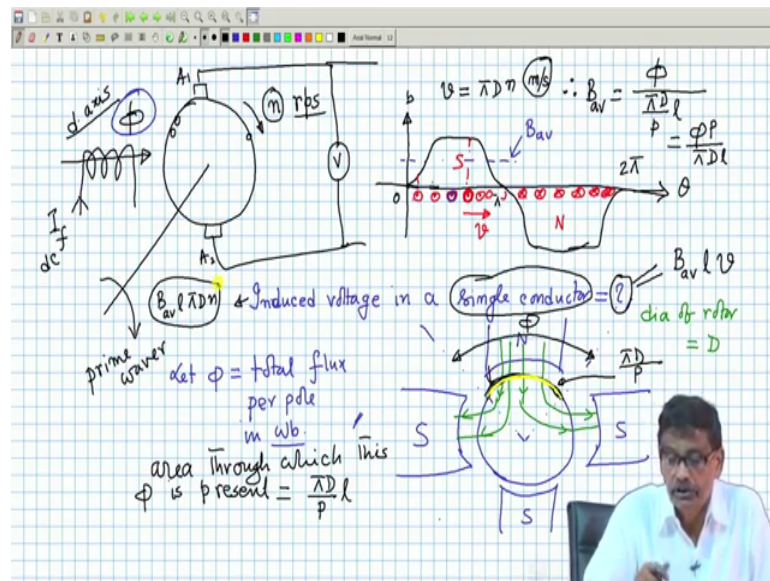 Arial Normal 12
A₁
d axis
ϕ
n rps
V
I_f
dc
A₂
prime
waver
b
v = πDn m/s ∴ B_av = ϕ / (πD/p) l
= ϕP / πDl
B_av
S
2π
0
π
θ
v
N
B_av l πDn ← Induced voltage in a single conductor = ? = B_av l v
dia of rotor
= D
Let ϕ = total flux
per pole
in wb.
area through which this
ϕ is present = πD/p l
ϕ
N
πD/P
S
S
S